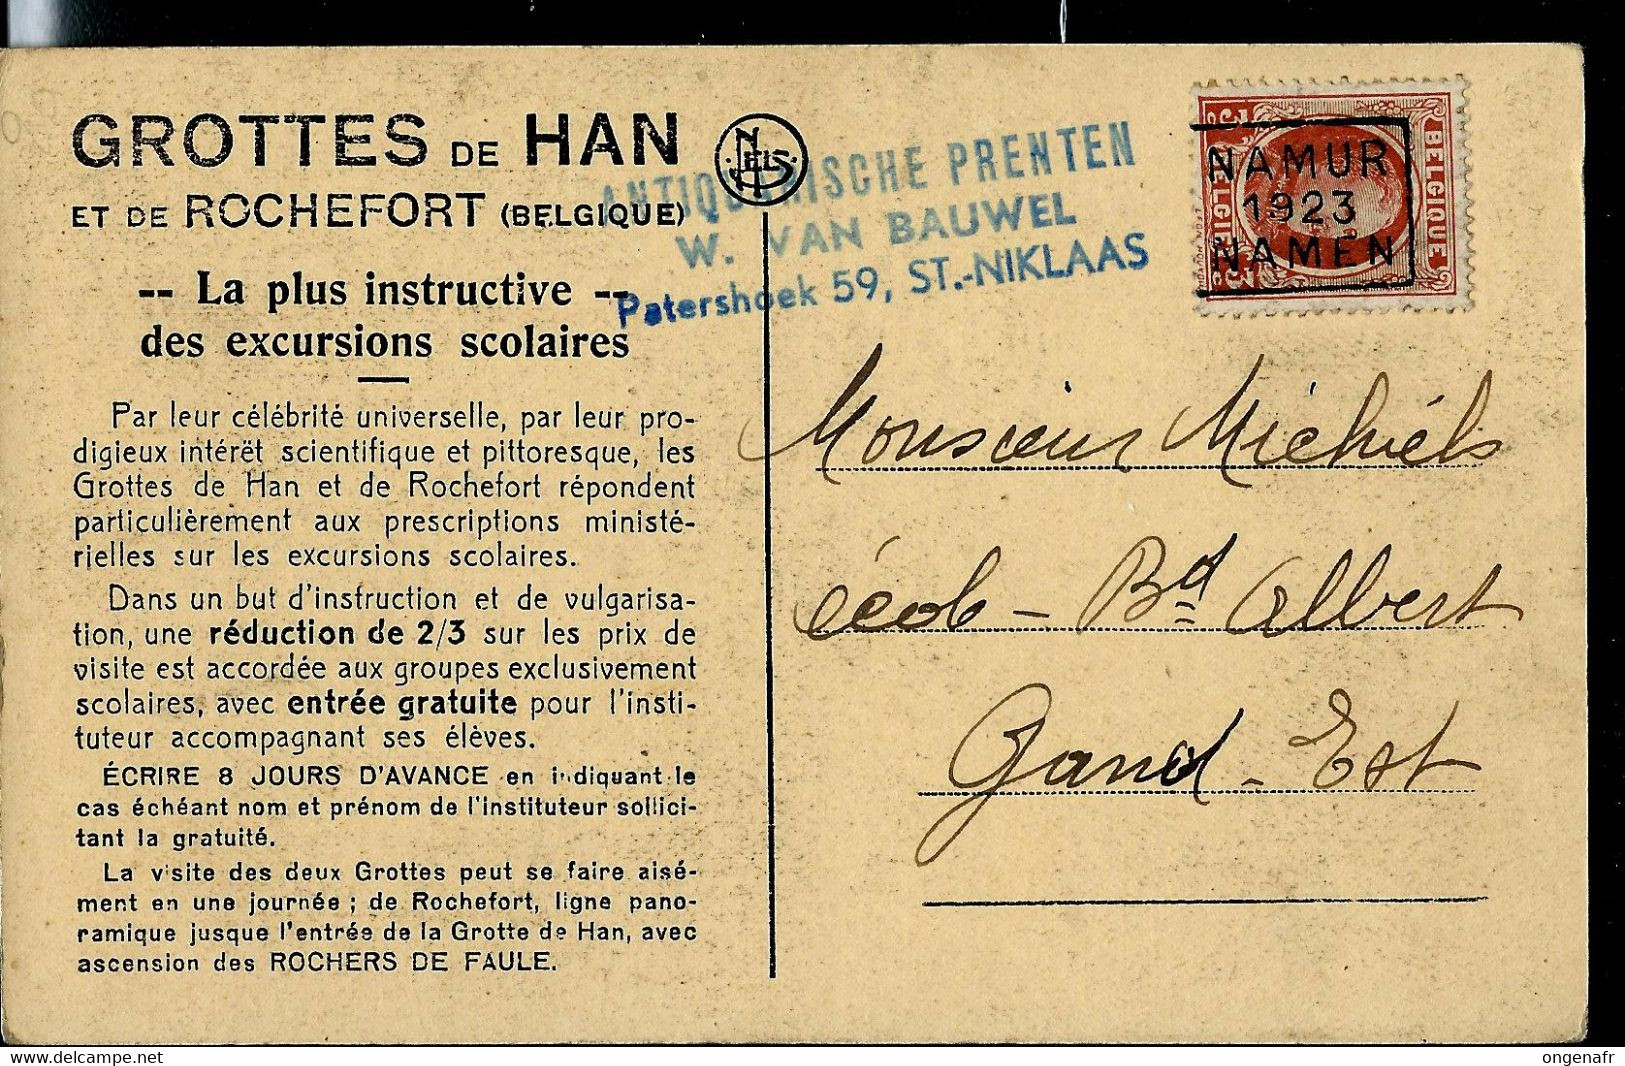 GROTTES DE HAN
ET DE ROCHEFORT (BELGIQUE)
-- La plus instructive --
des excursions scolaires
Par leur célébrité universelle, par leur pro-
digieux intérêt scientifique et pittoresque, les
Grottes de Han et de Rochefort répondent
particulièrement aux prescriptions ministé-
rielles sur les excursions scolaires.
Dans un but d'instruction et de vulgarisa-
tion, une réduction de 2/3 sur les prix de
visite est accordée aux groupes exclusivement
scolaires, avec entrée gratuite pour l'insti-
tuteur accompagnant ses élèves.
ÉCRIRE 8 JOURS D'AVANCE en indiquant le
cas échéant nom et prénom de l'instituteur sollici-
tant la gratuité.
La visite des deux Grottes peut se faire aisé-
ment en une journée ; de Rochefort, ligne pano-
ramique jusque l'entrée de la Grotte de Han, avec
ascension des ROCHERS DE FAULE.
NELS
ANTIQUARISCHE PRENTEN
W. VAN BAUWEL
Patershoek 59, ST.-NIKLAAS
BELGIQUE
BELGIE
NAMUR
1923
NAMEN
Monsieur Michiels
école - Bd Albert
Gand - Est
delcampe.net
ongenafr